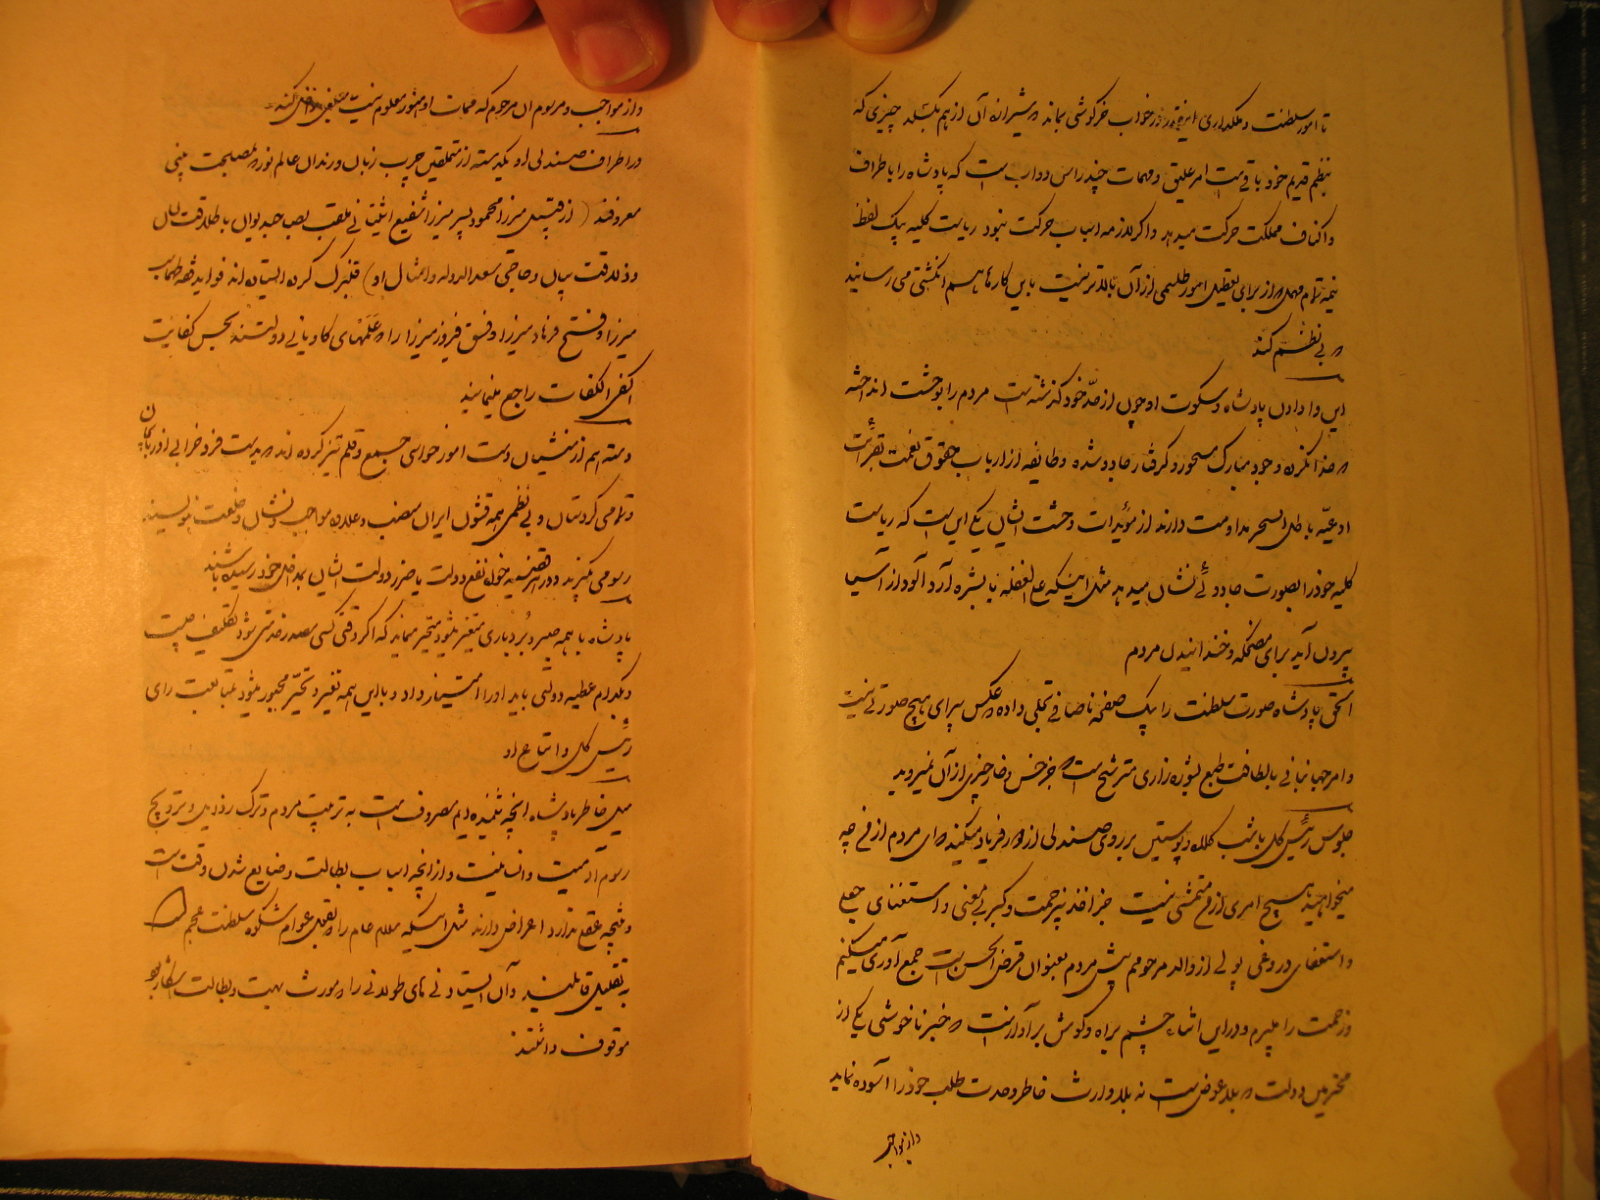 تا امور سلطنت و ملکداری در خواب خرگوشی بماند و شیرازه آن از هم بگسلد چیزی که
بنظم قدیم خود باقیست امر علیق و مهمات چند راس دواب است که پادشاه را باطراف
و اکناف مملکت حرکت میدهد و اگر لازمه اسباب حرکت نبود ریاست کلیه بیک لفظ
نیمه تمام مهمله از برای تعطیل امور طلیمی از آن بالاتر نیست باین کارها هم انگشتی می رسانید
و بی نظم کند
این وا دادن پادشاه و سکوت او چون از حد خود گذشته است مردم را بوحشت انداخته
و خدا نکرده وجود مبارک مسحور و گرفتار جادو شده و طایفه از ارباب حقوق نعمت بقرائت
ادعیه باطل السحر مداومت دارند از مؤیدات وحشت ایشان یکی این است که ریاست
کلیه خود را بصورت جادوئی نشان میدهد مثل اینکه علی الغفله با بشره آرد آلود از آسیا
بیرون آید برای مضحکه و خندانیدن مردم
الحق پادشاه صورت سلطنت را بیک صفحه ناصافی تجلی داده و عکس پیرای هیچ صورتی نیست
و امر جهانبانی بالطافت طبع بشوره زاری مترشح است که جز خس و خار چیزی از آن نمیروید
جلوس رئیس کل با شب کلاه و پوستین بر روی صندلی از و فریاد میکند ای مردم از من چه
میخواهید هیچ امری از من متمشی نیست جز اخذ بیزحمت و کبر بی معنی و استغنای جعلی
و استعفای دروغی پولی از والد مرحومم پیش مردم بعنوان قرض الحسن است جمع آوری میکنم
و زحمت را میبرم و در این اثنا چشم براه و گوش بر آواز است و خبر ناخوشی یکی از
محترمین دولت و بلاعوض است نه بلا وارث خاطر وحدت طلب خود را آسوده نماید
و از مواجب
و از مواجب و مرسوم آن مرحوم که ممات او هنوز معلوم نیست
در اطراف صندلی او یکدسته از متملقین چرب زبان و رندان عالم نور و مصلحت بینی
معروفند ( از قبیل میرزا محمود پسر میرزا شفیع آشتیانی ملقب بصاحبدیوان باطلاقت لسان
و ذلاقت بیان و حاجی سعدالدوله و امثال او ) قنبرک کرده ایستاده اند فواید قهر طهماسب
میرزا و فتح فرهاد میرزا و فسق فیروز میرزا را و علمهای کاویانی دولتند بحس کفایت
اکفی الکفات راجع مینمایند
دسته هم از منشیان دست آموز حواسی جمع و قلم تیز کرده اند و بدست فرد خرابی آذربایجان
و ناامنی کردستان و بی نظمی همه قشون ایران منصب و علاوه مواجب و نشان و خلعت مینویسند
رسومی میگیرند و در اینصورت خواه نفع دولت یا ضرر دولت ایشان بمداخل خود رسیده باشند
پادشاه با همه صبر و بردباری متغیر میشود و متحیر میماند که اگر وقتی کسی مصدر خدمتی شود تکلیف چیست
و بکدام عطیه دولتی باید او را امتیاز داد و با این همه تغیر و تحیر مجبور میشود بمتابعت رای
رئیس کل و اتباع او
میل خاطر پادشاه آنچه شنیده ایم مصروف است به تربیت مردم و ترک رذایل و ترویج
رسوم آدمیت و انسانیت و از آنچه اسباب بطالت و ضایع شدن وقت است
و نتیجه عقلی ندارد اعراض دارند مثل اینکه سلام عام را که بقول عوام شکوه سلطنت عجم است
به تقلیل قائلند و آن ایستادنی های طولانی را که مورث بهت و بطالت است
موقوف داشتند